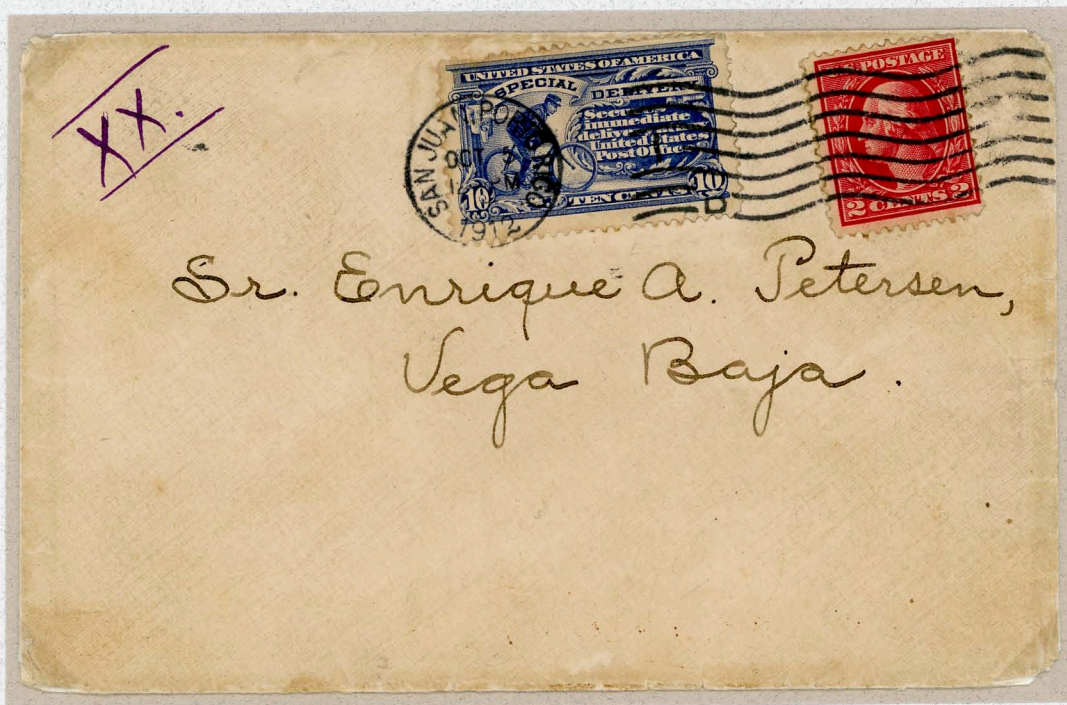 XX.
UNITED STATES OF AMERICA
SPECIAL DELIVERY
Secures
immediate
delivery
United States
Post Office
10 TEN CENTS 10
SAN JUAN, PORTO RICO
OCT 7
M
1912
D
U.S. POSTAGE
2 CENTS 2
Sr. Enrique A. Petersen,
Vega Baja.